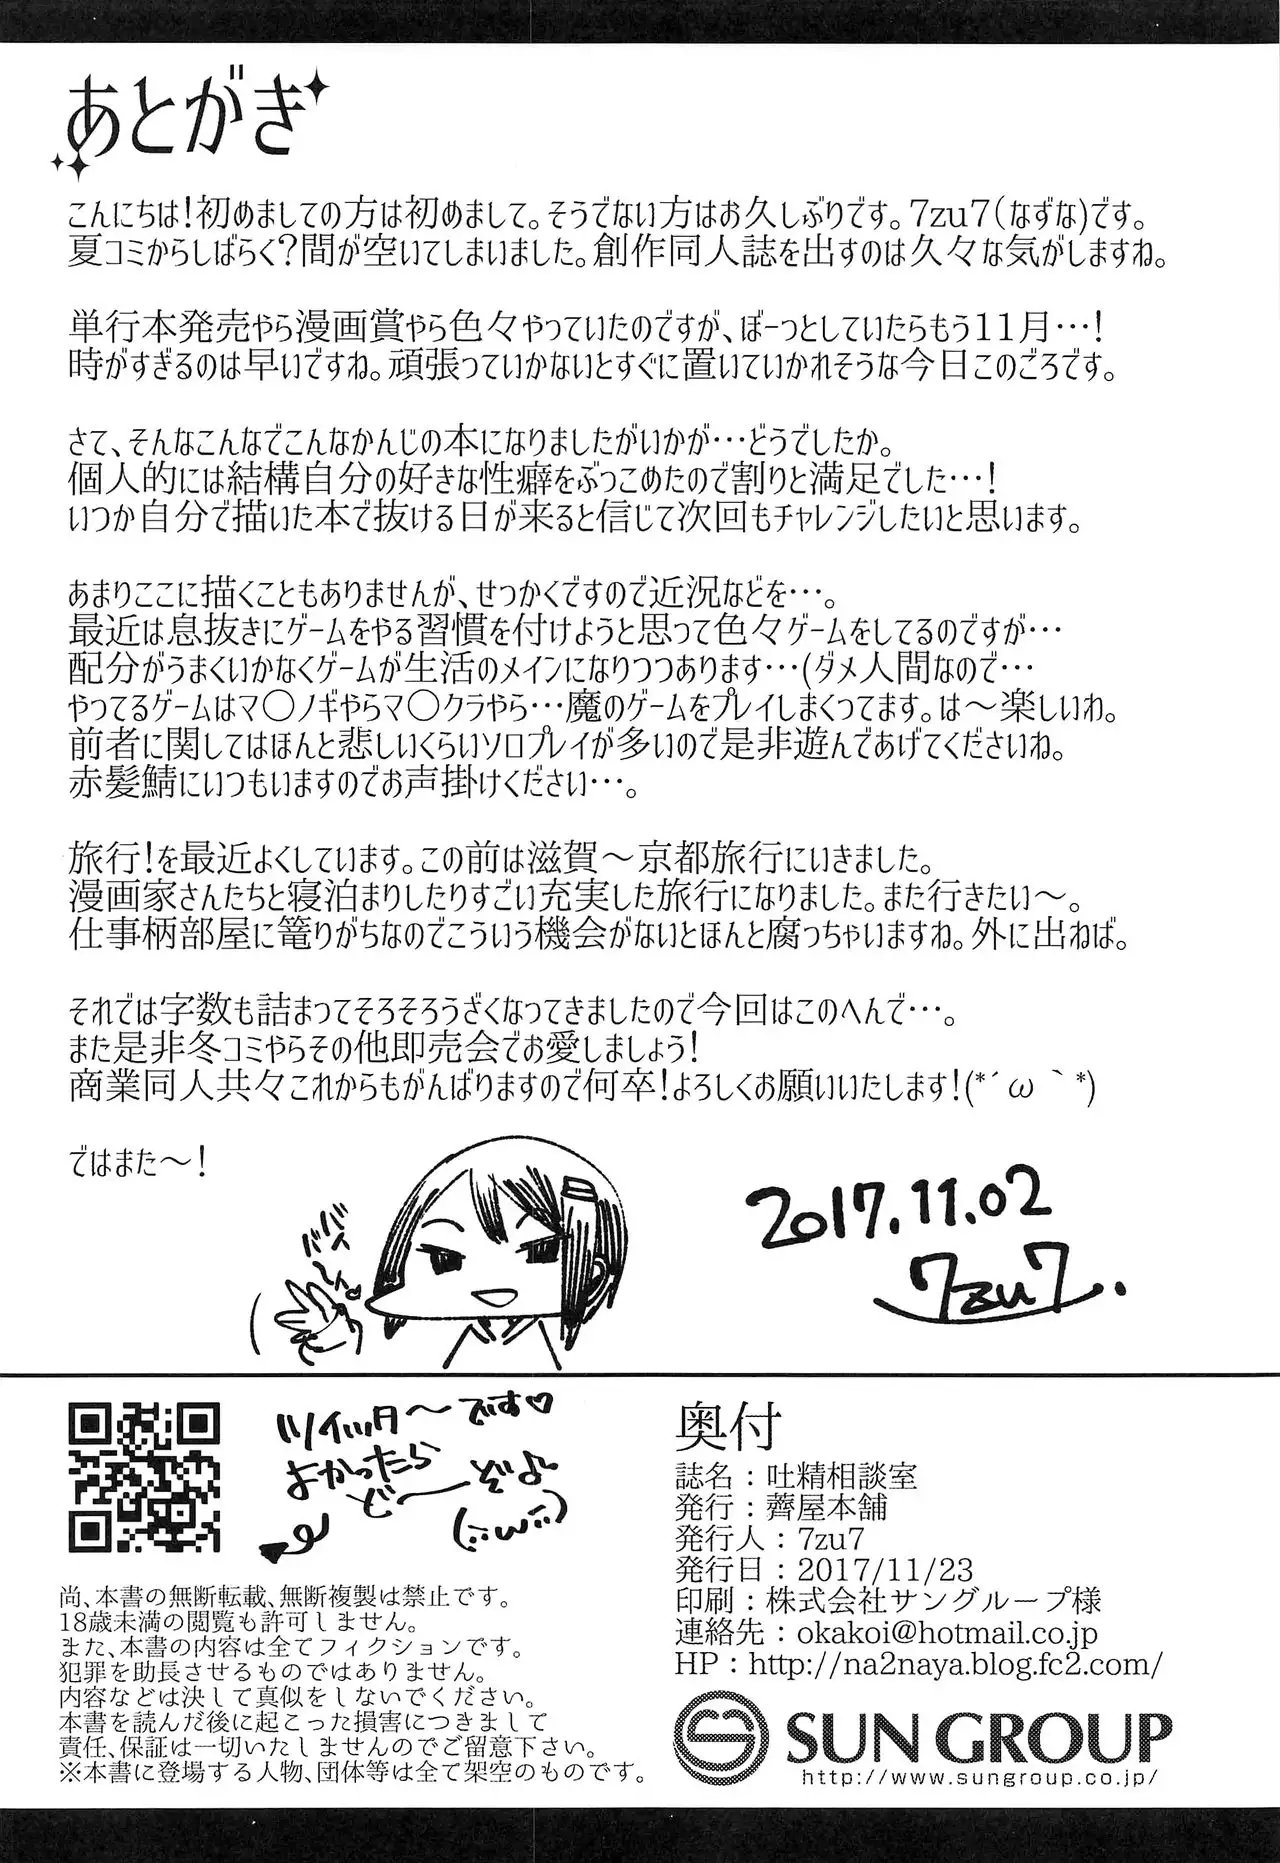 あとがき
こんにちは!初めましての方は初めまして。そうでない方はお久しぶりです。7zu7(なずな)です。
夏コミからしばらく?間が空いてしまいました。創作同人誌を出すのは久々な気がしますね。
単行本発売やら漫画賞やら色々やっていたのですが、ぼーっとしていたらもう11月…!
時がすぎるのは早いですね。頑張っていかないとすぐに置いていかれそうな今日このごろです。
さて、そんなこんなでこんなかんじの本になりましたがいかが…どうでしたか。
個人的には結構自分の好きな性癖をぶっこめたので割りと満足でした…!
いつか自分で描いた本で抜ける日が来ると信じて次回もチャレンジしたいと思います。
あまりここに描くこともありませんが、せっかくですので近況などを…。
最近は息抜きにゲームをやる習慣を付けようと思って色々ゲームをしてるのですが…
配分がうまくいかなくゲームが生活のメインになりつつあります…(ダメ人間なので…
やってるゲームはマ〇ノギやらマ〇クラやら…魔のゲームをプレイしまくってます。は〜楽しいわ。
前者に関してはほんと悲しいくらいソロプレイが多いので是非遊んであげてくださいね。
赤髪鯖にいつもいますのでお声掛けください…。
旅行!を最近よくしています。この前は滋賀〜京都旅行にいきました。
漫画家さんたちと寝泊まりしたりすごい充実した旅行になりました。また行きたい〜。
仕事柄部屋に篭りがちなのでこういう機会がないとほんと腐っちゃいますね。外に出ねば。
それでは字数も詰まってそろそろうざくなってきましたので今回はこのへんで…。
また是非冬コミやらその他即売会でお愛しましょう!
商業同人共々これからもがんばりますので何卒!よろしくお願いいたします!(*´ω｀*)
ではまた〜!
バイバ〜イ♪
2017.11.02
7zu7.
ツイッタ〜です♡
よかったら
ど〜ぞよ
(´･ω･｀)
尚、本書の無断転載、無断複製は禁止です。
18歳未満の閲覧も許可しません。
また、本書の内容は全てフィクションです。
犯罪を助長させるものではありません。
内容などは決して真似をしないでください。
本書を読んだ後に起こった損害につきまして
責任、保証は一切いたしませんのでご留意下さい。
※本書に登場する人物、団体等は全て架空のものです。
奥付
誌名：吐精相談室
発行：薺屋本舗
発行人：7zu7
発行日：2017/11/23
印刷：株式会社サングループ様
連絡先：okakoi@hotmail.co.jp
HP：http://na2naya.blog.fc2.com/
SUN GROUP
http://www.sungroup.co.jp/